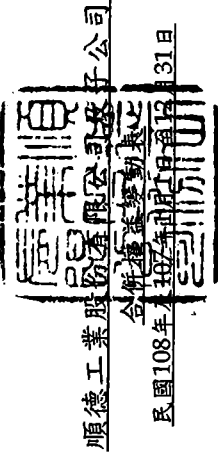 順德工業股份有限公司及子公司
合併權益變動表
民國108年及107年1月1日至12月31日